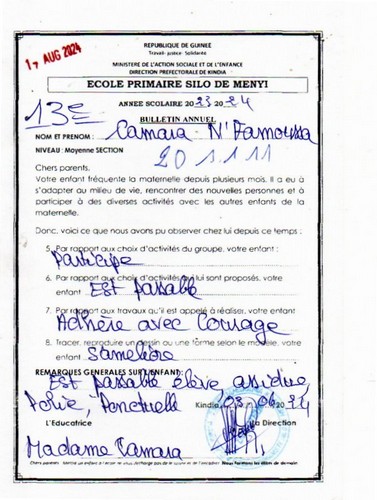 17 AUG 2024
REPUBLIQUE DE GUINEE
Travail- justice- Solidarité
MINISTERE DE L'ACTION SOCIALE ET DE L'ENFANCE
DIRECTION PREFECTORALE DE KINDIA
ECOLE PRIMAIRE SILO DE MENYI
13e ANNEE SCOLAIRE 2023 2024
BULLETIN ANNUEL
NOM ET PRENOM : Camara N'Famoussa
NIVEAU: Moyenne SECTION
Chers parents.
Votre enfant fréquente la maternelle depuis plusieurs mois. Il a eu à
s'adapter au milieu de vie, rencontrer des nouvelles personnes et à
participer à des diverses activités avec les autres enfants de la
maternelle.
Donc, voici ce que nous pu observer chez lui depuis ce temps :
5. Par rapport aux choix d'activités du groupe, votre enfant :
Participe
6. Par rapport aux choix d'activités qui lui sont proposés, votre
enfant Est passable
7. Par rapport aux travaux qu'il est appelé à réaliser, votre enfant
Adhère avec Courage
8. Tracer, reproduire un dessin ou une forme selon le modèle, votre
enfant s'améliore
REMARQUES GENERALES SUR L'ENFANT:
Est passable élève, assidue,
Polie, Ponctuelle Kindia 03.06.2024
L'Educatrice La Direction
Madame Camara